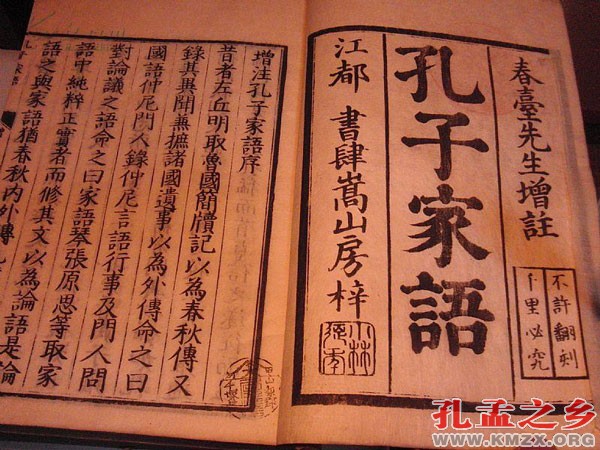 春臺先生增註
不許翻刻
千里必究
孔子家語
江都 書肆嵩山房梓
小林
增注孔子家語序
昔者左丘明取魯國簡牘記以為春秋傳又
錄其異聞兼摭諸國遺事以為外傳命之曰
國語仲尼門人錄仲尼言語行事及門人問
對論議之語命之曰家語琴張原思等取家
語中純粹正實者而修其文以為論語是論
語之與家語猶春秋內外傳
孔子家語
孔孟之乡
WWW.KMZX.ORG